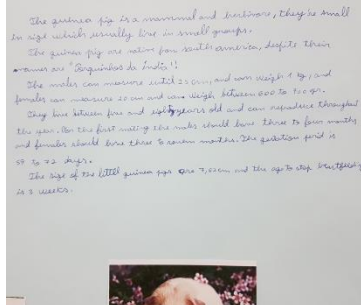 The guinea pig is a mammal and herbivore, they're small
in size which usually live in small groups.
The guinea pig are native from south america, despite their
names are "Porquinhos da índia"!
The males can measure until 25 cm, and can weigh 1 kg, and
females can measure 20 cm and can weigh between 800 to
They live between five and eight years old and can reproduce throughout
the year. For the first mating the males should have three to four months
and females should have three to seven months. The gestation period is
59 to 72 days.
The size of the little guinea pigs are 7,62cm and the age to stop breastfeeding
is 3 weeks.